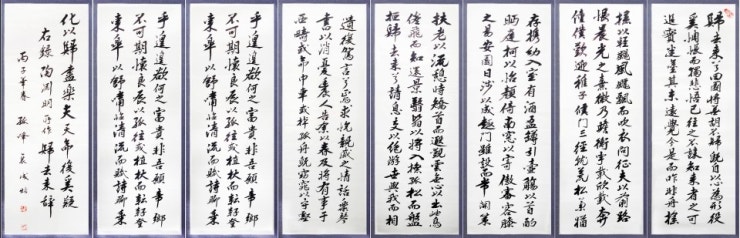 歸去來兮田園將蕪胡不歸既自以心為形役
奚惆悵而獨悲悟已往之不諫知來者之可
追實迷途其未遠覺今是而昨非舟搖
搖以輕颺風飄飄而吹衣問征夫以前路
恨晨光之熹微乃瞻衡宇載欣載奔
僮僕歡迎稚子候門三徑就荒松菊猶
存攜幼入室有酒盈罇引壺觴以自酌
眄庭柯以怡顏倚南窗以寄傲審容膝
之易安園日涉以成趣門雖設而常關策
扶老以流憩時矯首而遐觀雲無心以出岫鳥
倦飛而知還景翳翳以將入撫孤松而盤
桓歸去來兮請息交以絕游世與我而相
遺復駕言兮焉求悅親戚之情話樂琴
書以消憂農人告余以春及將有事于
西疇或命巾車或棹孤舟既窈窕以尋壑
乎遑遑欲何之富貴非吾願帝鄉
不可期懷良辰以孤往或植杖而耘耔登
東皋以舒嘯臨清流而賦詩聊乘
乎遑遑欲何之富貴非吾願帝鄉
不可期懷良辰以孤往或植杖而耘耔登
東皋以舒嘯臨清流而賦詩聊乘
化以歸盡樂夫天命復奚疑
右錄陶淵明所作歸去來辭
丙子年春